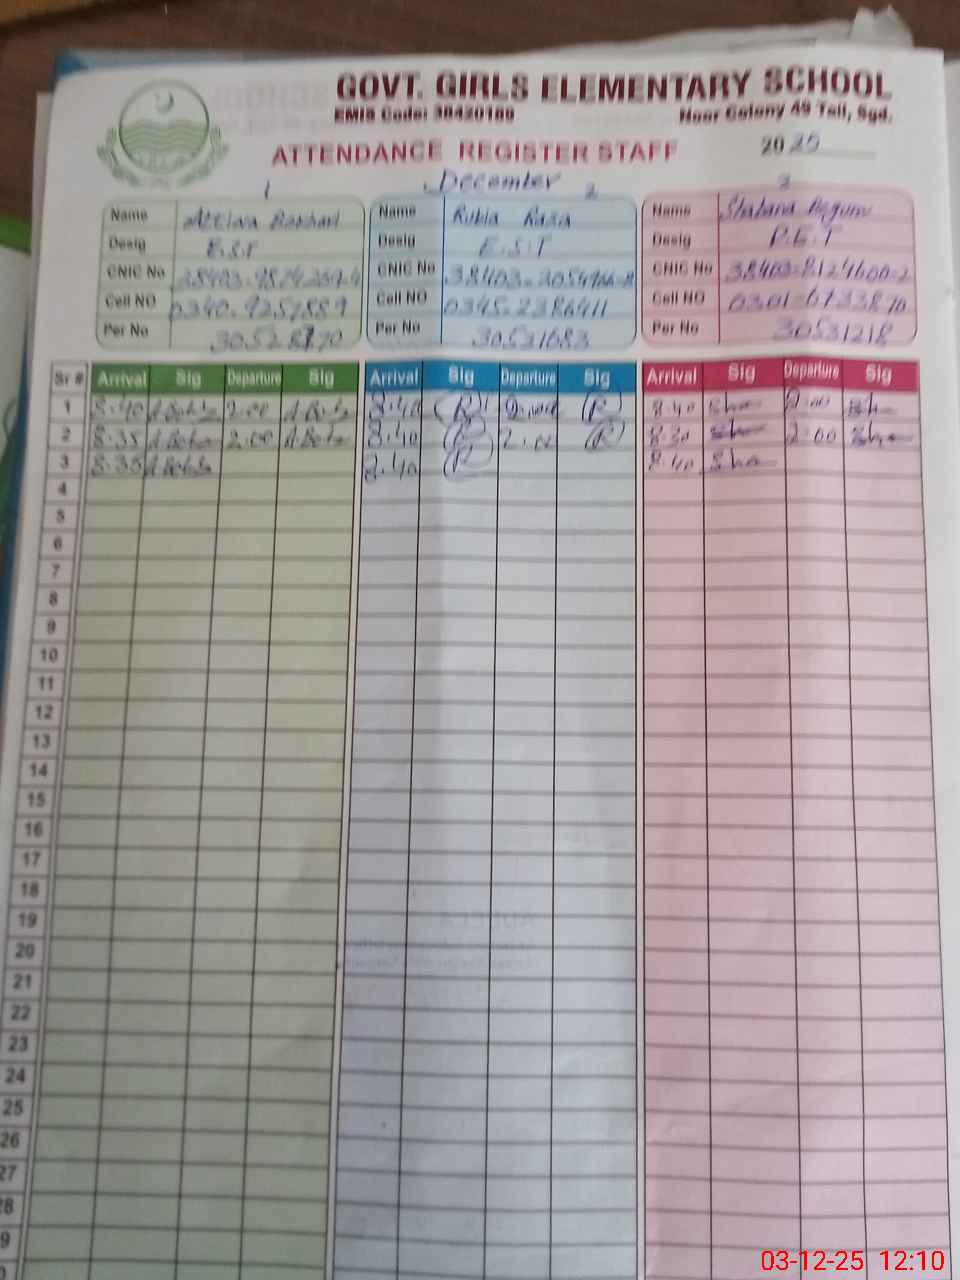 GOVT. GIRLS ELEMENTARY SCHOOL
EMIS Code: 38420100 Noor Colony 49 Tail, Sgd.
ATTENDANCE REGISTER STAFF 2025
December
1 2 3
Name Name Rubia Raza Name Shahana Begum
Desig E.S.T Desig E.S.T Desig P.E.T
CNIC No CNIC No CNIC No
Cell NO Cell NO 0345-2386411 Cell NO 0301-6733870
Per No Per No 30531683 Per No 30531218
Sr # Arrival Sig Departure Sig Arrival Sig Departure Sig Arrival Sig Departure Sig
1 8.40 2.00 8.40 R 2.00 R 8.40 Sha 2.00 Sha
2 8.35 2.00 8.40 R 2.00 R 8.30 Sha 2.00 Sha
3 8.35 8.40 R 8.40 Sha
4
5
6
7
8
9
10
11
12
13
14
15
16
17
18
19
20
21
22
23
24
25
26
27
28
9
03-12-25 12:10